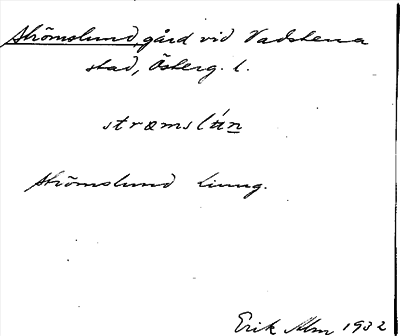 Strömslund, gård vid Vadstena
stad, Österg. l.
Strömslund Ljung.
Erik Alm 1932